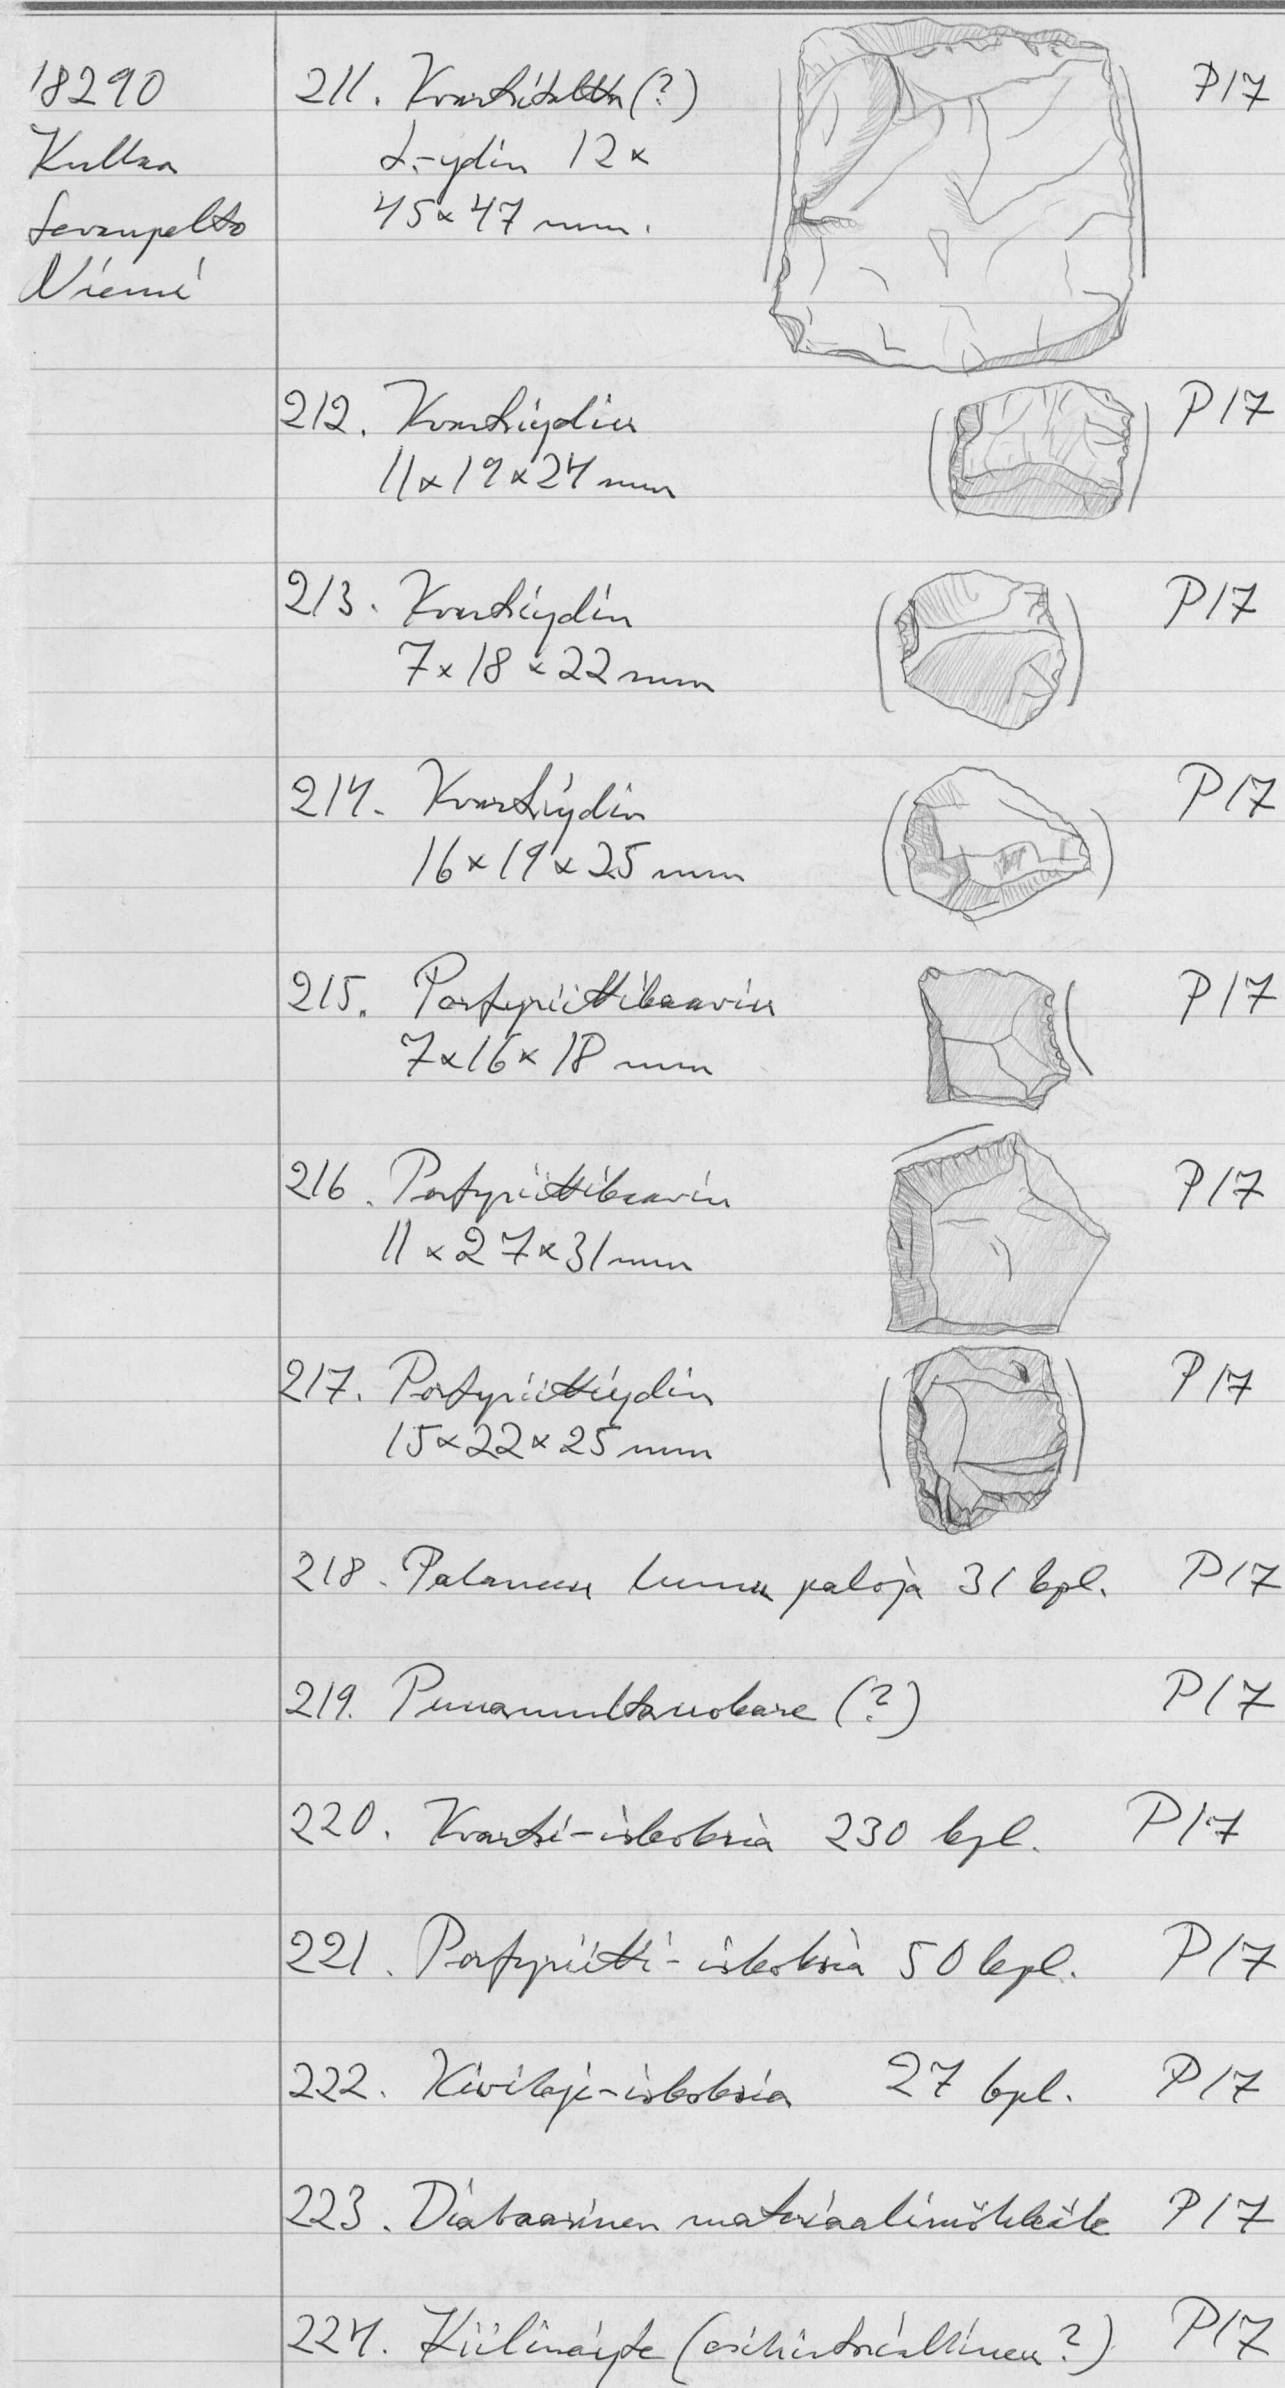 18290
Kullaa
Levanpelto
Niemi
211. Kvartsitaltta (?)
t. -ydin 12x
45x47 mm.
P17
212. Kvartsiydin
11x19x24 mm
P17
213. Kvartsiydin
7x18x22 mm
P17
214. Kvartsiydin
16x19x25 mm
P17
215. Porfyriittikaavin
7x16x18 mm
P17
216. Porfyriittikaavin
11x27x31 mm
P17
217. Porfyriittiydin
15x22x25 mm
P17
218. Palaneen luun paloja 31 kpl. P17
219. Punamultanokare (?) P17
220. Kvartsi-iskoksia 230 kpl. P17
221. Porfyriitti-iskoksia 50 kpl. P17
222. Kivilaji-iskoksia 27 kpl. P17
223. Diabaasinen materiaalimöhkäle P17
224. Hiilinäyte (esihistoriallinen?) P17